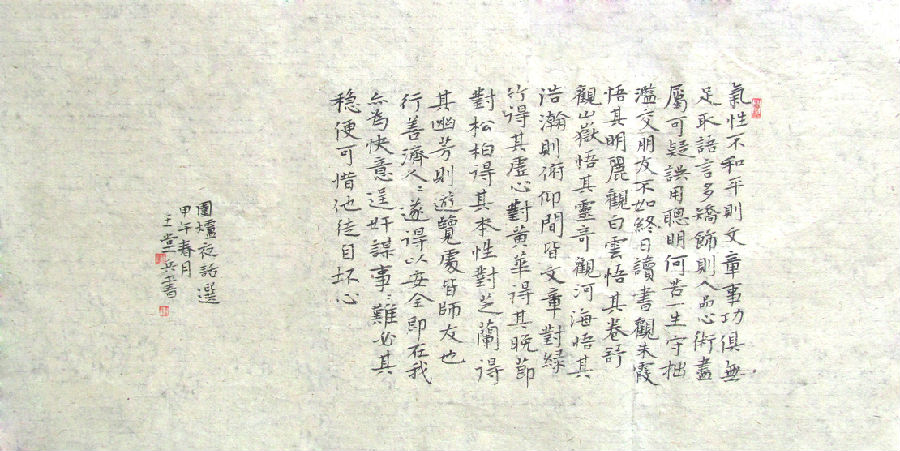 氣性不和平則文章事功俱無
足取語言多矯飾則人品心術盡
屬可疑誤用聰明何若一生守拙
濫交朋友不如終日讀書觀朱霞
悟其明麗觀白雲悟其卷舒
觀山嶽悟其靈奇觀河海悟其
浩瀚則俯仰間皆文章對綠
竹得其虛心對黃華得其晚節
對松柏得其本性對芝蘭得
其幽芳則遊覽處皆師友也
行善濟人人遂得以安全即在我
亦為快意逞奸謀事事難必其
穩便可惜他徒自坏心
圍爐夜話選
甲午春月
王
兵書